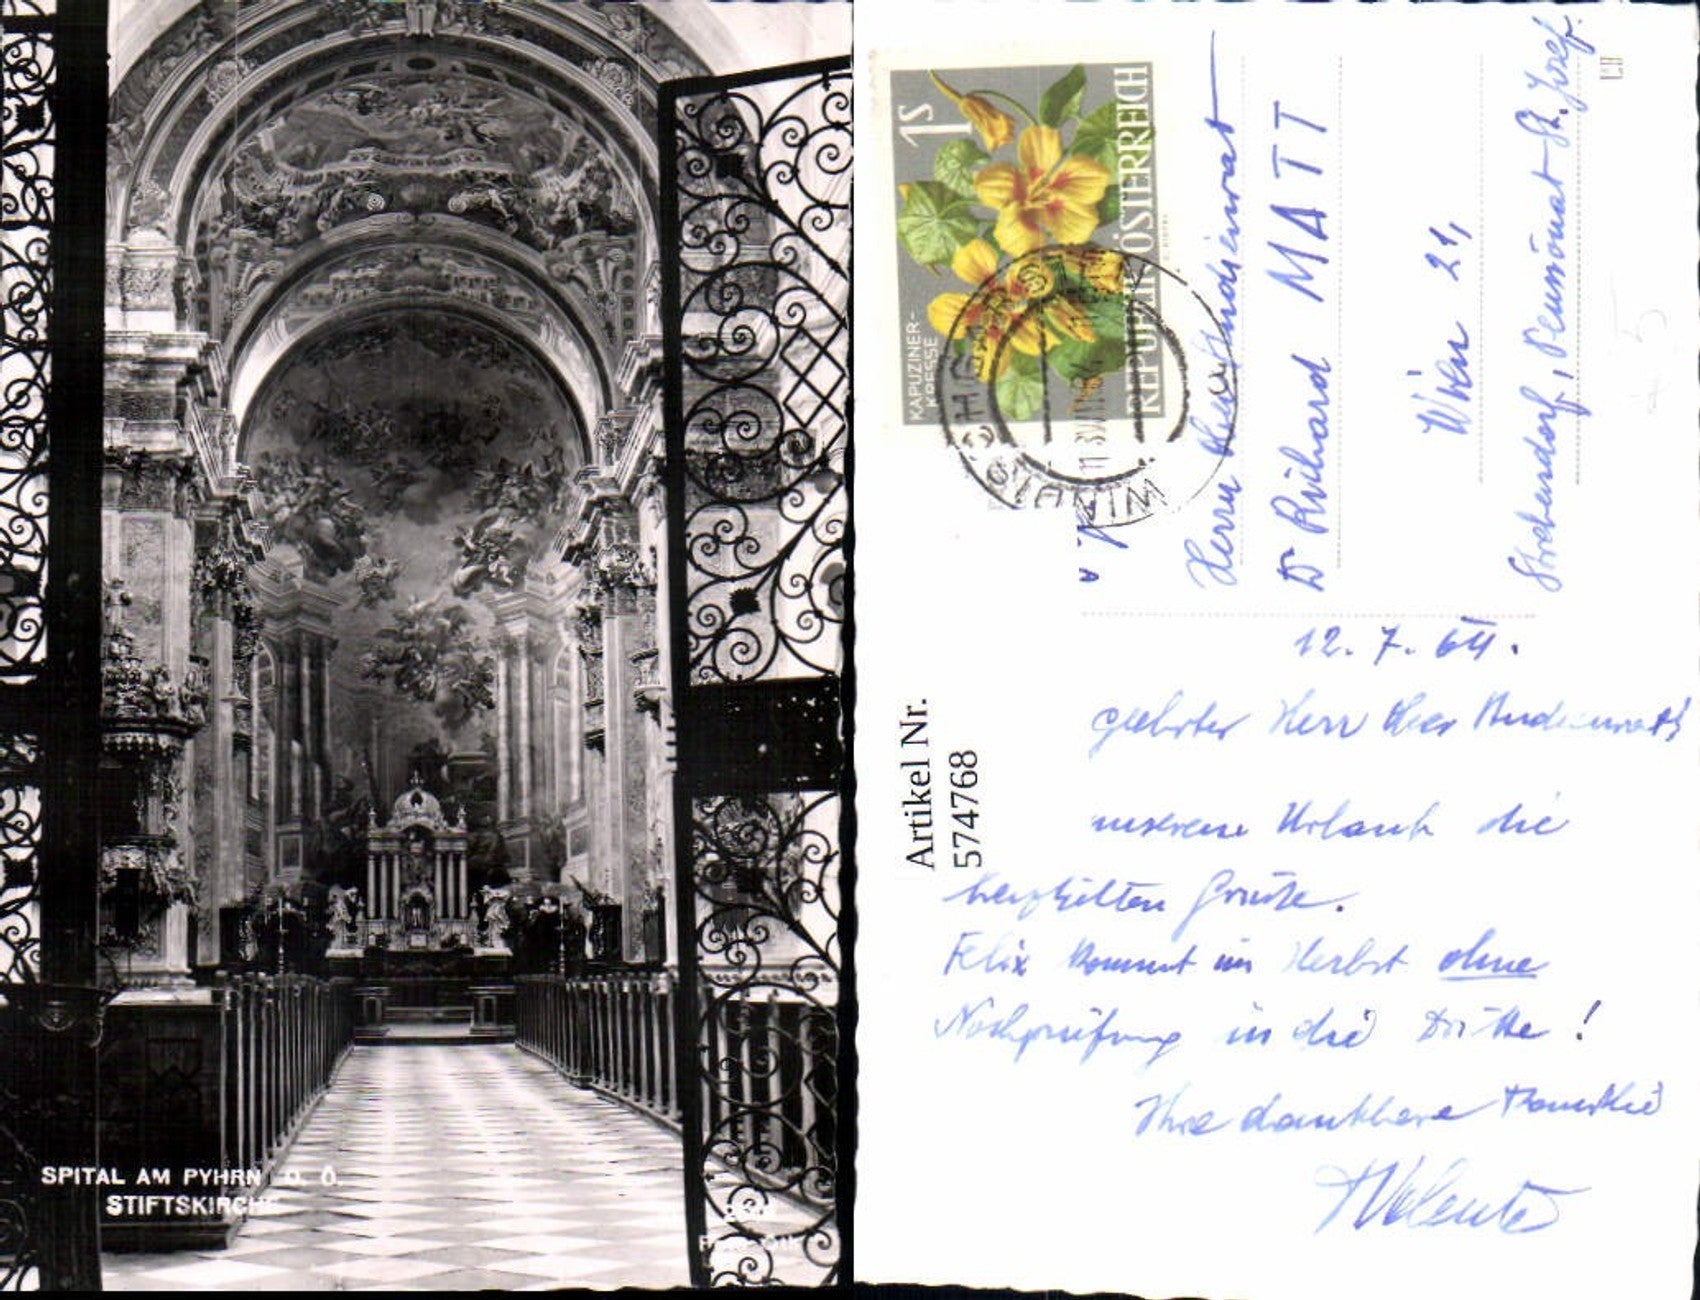 SPITAL AM PYHRN O. Ö.
STIFTSKIRCHE
1S
KAPUZINER-
KRESSE
REPUBLIK ÖSTERREICH
Herrn
Dr Reinhard MATT
Wien 21,
Strebersdorf, Pensionat St. Josef.
Artikel Nr.
574768
12. 7. 64.
geehrter Herr
unserem Urlaub die
herzlichsten Grüße.
Felix kommt im Herbst ohne
Nachprüfung in die Dritte!
Ihre dankbare Familie